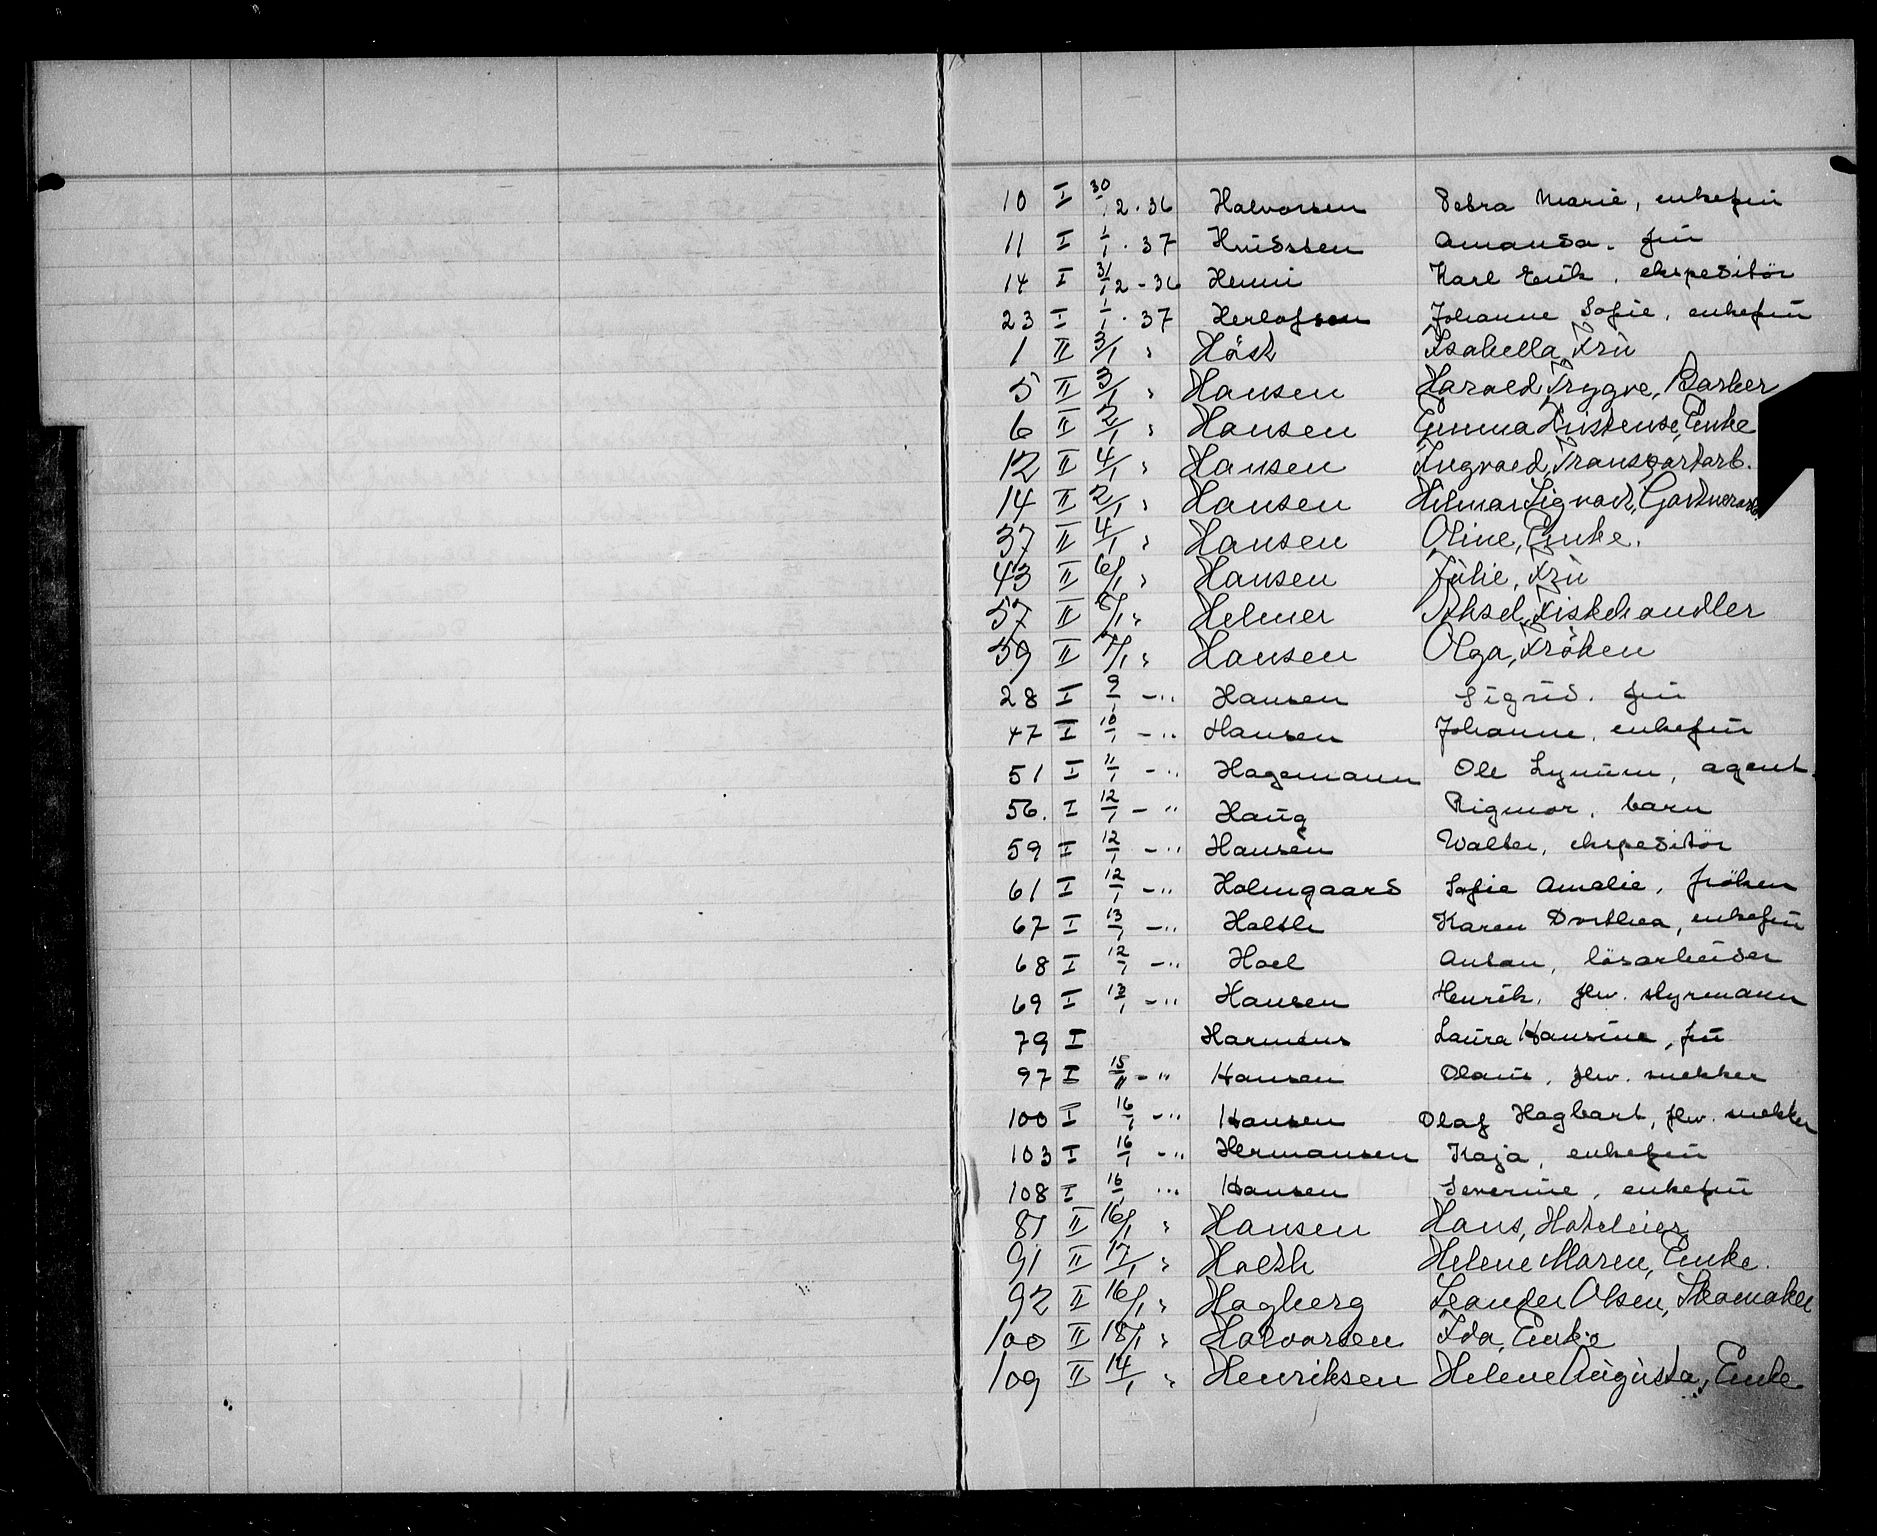 10 I 30/12-36 Halvorsen Petra Marie, enkefrú
11 I 1/1-37 Knúdsen Amanda, frú
14 I 31/12-36 Henni Karl Erik, ekspeditör
23 I 1/1-37 Herlofsen Johanne Sofie, enkefrú
1 II 3/1 " Höst Isabella, Frú
5 II 3/1 " Hansen Harald Trygve, Barber
6 II 2/1 " Hansen Emma Kristense, Enke
12 II 4/1 " Hansen Ingvald, Transportarb.
14 II 2/1 " Hansen Hilmar Sigvart, Gartnerarb.
37 II 4/1 " Hansen Oline, Enke.
43 II 6/1 " Hansen Júlie, Frú
57 II 8/1 " Helmer Aksel, Fiskehandler
59 II 7/1 " Hansen Olga, Fröken
28 I 9/1 -" Hansen Sigrid, frú
47 I 10/1 -" Hansen Johanne, enkefrú
51 I 11/1 -" Hagemann Ole Lynúm, agent.
56. I 12/1 -" Haúg Rigmor, barn
59 I 12/1 -" Hansen Walter, ekspeditör
61 I 12/1 -" Holmgaard Sofie Amalie, fröken
67 I 13/1 -" Holth Karen Dorthea, enkefrú
68 I 12/1 -" Hoel Anton, lösarbeider
69 I 13/1 -" Hansen Henrik, fhv. styrmann
79 I Harmens Laúra Hansine, frú
97 I 15/1 -" Hansen Olaús, fhv. snekker
100 I 16/1 -" Hansen Olaf Hagbart, fhv. snekker
103 I 16/1 -" Hermansen Kaja, enkefrú
108 I 16/1 -" Hansen Severine, enkefrú
87 II 16/1 " Hansen Hans, Hoteleier
91 II 17/1 " Holth Helene Maren, Enke.
92 II 16/1 " Hagberg Leander Olsen, Skomaker
100 II 18/1 " Halvorsen Ida, Enke
109 II 14/1 " Henriksen Helene Aúgústa, Enke